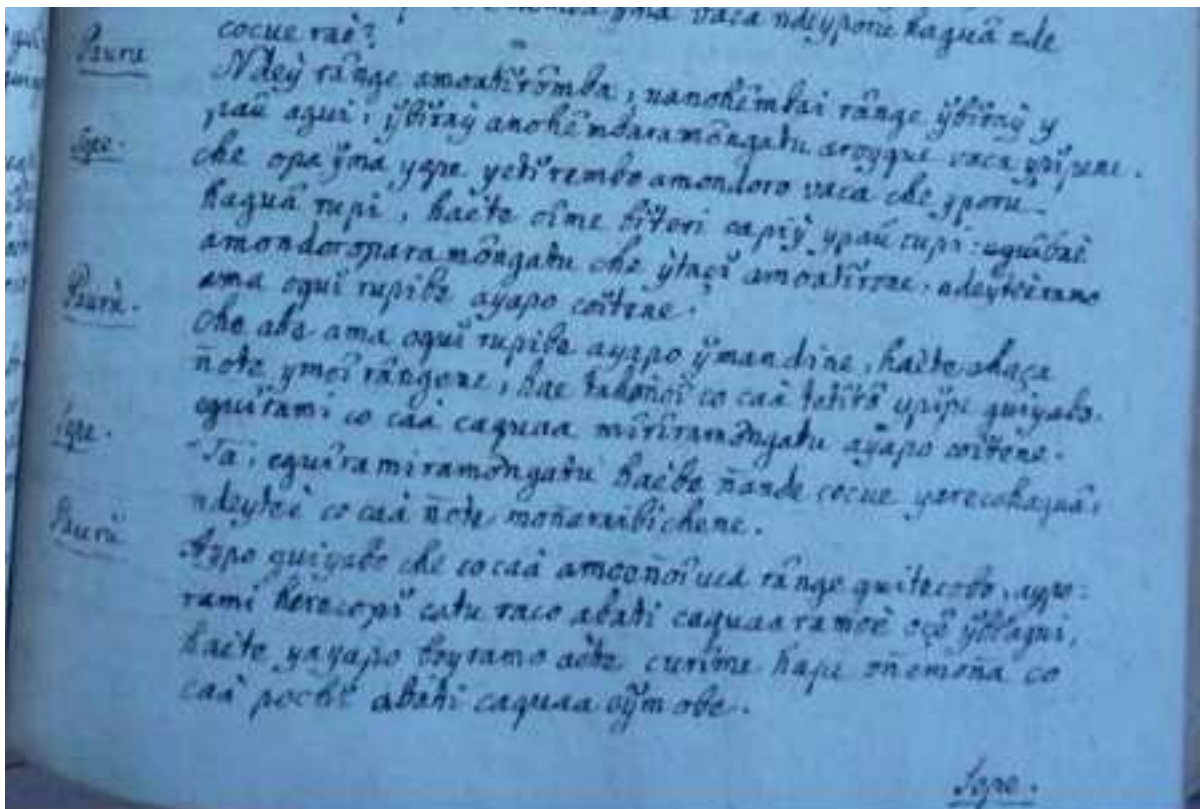 yma vaca ndeyporu haguâ nde
cocue raè?
Pauru Ndeỳ rânge amoatĩrõmba, nanohêmbai rânge ỹbĩraỳ y
paũ agui, ỹbĩraỳ anohêmbaramôngatu aroyque vaca ypĩpene.
Sope. che opa ỹma yepe yetĩrembo amondoro vaca che yporu
haguâ rupi, haète oĩme bĩteri capiỳ ypaũ rupi: eguĩbaè
amondoroparamôngatu che ỳtaçĩ amoatĩrone. ndeyteèramo
ama oguĩ rupibe ayapo coĩtene.
Paurù. che abe ama oguĩ rupibe ayapo ỹmandine, haète ahaça
ñote ymoĩ rângone, hae tahoñoĩ co caà tetĩrõ ypĩpe guiyabo.
eguĩrami co caà caguaa mĩrĩramôngatu aỹapo coĩtene.
Sope. Ta, eguĩramiramôngatu haèbe ñande cocue yarecohaguâ,
ndeyteè co caà ñote moñaruibichene.
Paurù Aypo guiyabo che co caà amoeñoĩuca rânge guitecobo, aypo=
rami herecopĩ catu raco abati caguaaramoè oçẽ ỹbĩagui,
haète yayapo boyramo aète curime haçe oñemoña co
caà pochĩ abati caguaa oỹmobe.
Sope.